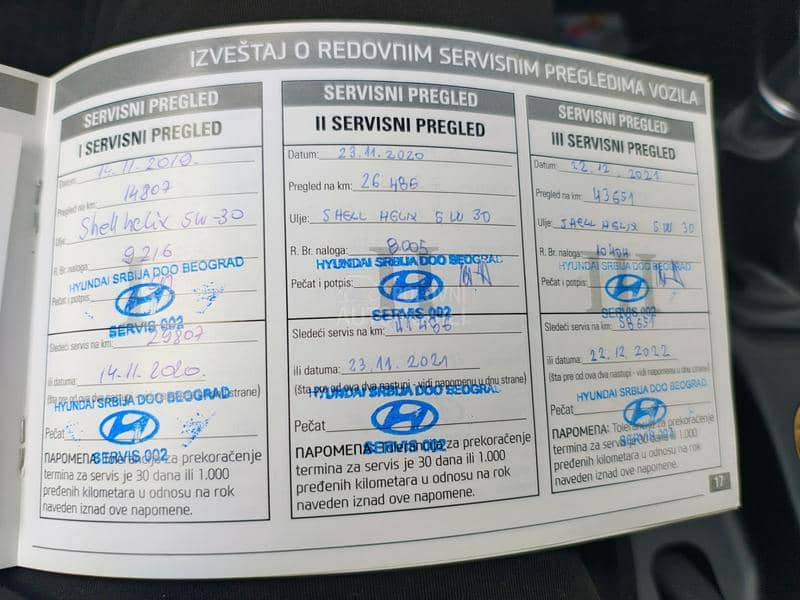 IZVEŠTAJ O REDOVNIM SERVISNIM PREGLEDIMA VOZILA
SERVISNI PREGLED
I SERVISNI PREGLED
Datum: 14.11.2019.
Pregled na km: 14807
Ulje: Shell helix 5W-30
R. Br. naloga: 9216
HYUNDAI SRBIJA DOO BEOGRAD
Pečat i potpis:
SERVIS 002
Sledeći servis na km: 29807
ili datuma: 14.11.2020.
(šta pre od ova dva nastupi - vidi napomenu u dnu strane)
HYUNDAI SRBIJA DOO BEOGRAD
Pečat
SERVIS 002
NAPOMENA: Tolerancija za prekoračenje
termina za servis je 30 dana ili 1.000
pređenih kilometara u odnosu na rok
naveden iznad ove napomene.
SERVISNI PREGLED
II SERVISNI PREGLED
Datum: 23.11.2020
Pregled na km: 26 486
Ulje: SHELL HELIX 5W 30
R. Br. naloga: 8005
HYUNDAI SRBIJA DOO BEOGRAD
Pečat i potpis:
SERVIS 002
Sledeći servis na km: 41486
ili datuma: 23.11.2021
(šta pre od ova dva nastupi - vidi napomenu u dnu strane)
HYUNDAI SRBIJA DOO BEOGRAD
Pečat
SERVIS 002
NAPOMENA: Tolerancija za prekoračenje
termina za servis je 30 dana ili 1.000
pređenih kilometara u odnosu na rok
naveden iznad ove napomene.
SERVISNI PREGLED
III SERVISNI PREGLED
Datum: 22.12.2021
Pregled na km: 43651
Ulje: SHELL HELIX 5W 30
R. Br. naloga:
HYUNDAI SRBIJA DOO BEOGRAD
Pečat i potpis:
SERVIS 002
Sledeći servis na km: 58651
ili datuma: 22.12.2022
(šta pre od ova dva nastupi - vidi napomenu u dnu strane)
HYUNDAI SRBIJA DOO BEOGRAD
Pečat
SERVIS 002
NAPOMENA: Tolerancija za prekoračenje
termina za servis je 30 dana ili 1.000
pređenih kilometara u odnosu na rok
naveden iznad ove napomene.
17